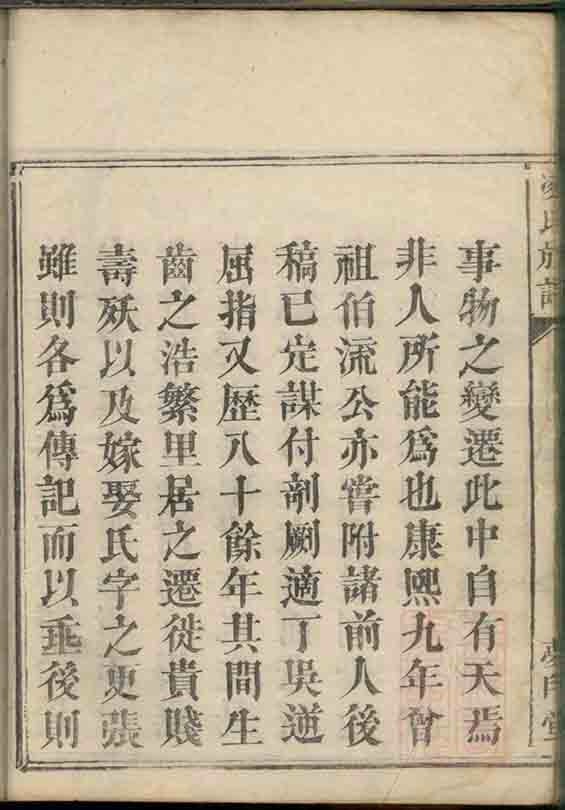 氏族譜
事物之變遷此中自有天焉
非人所能爲也康熙九年曾
祖伯流公亦嘗附諸前人後
稿已定謀付剞劂適丁吳逆
屈指又歷八十餘年其間生
齒之浩繁里居之遷徙貴賤
壽殀以及嫁娶氏字之更張
雖則各爲傳記而以垂後則